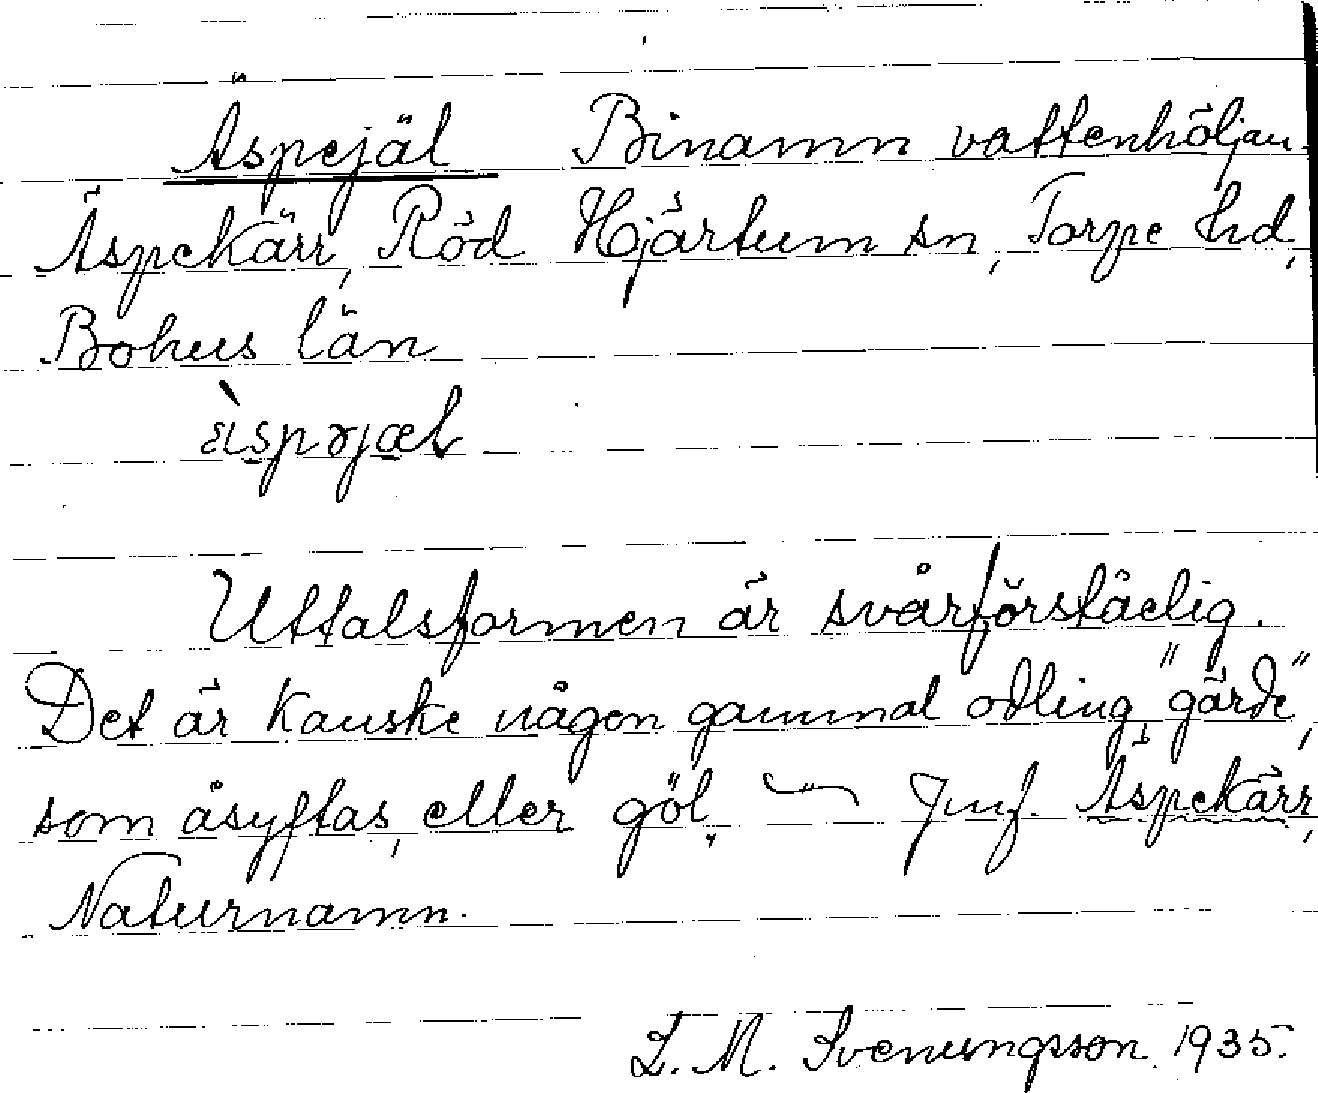 Äspejäl Binamn vattenhöljan
Äspekärr, Röd Hjärtum sn, Torpe hd,
Bohus län
Uttalsformen är svårförståelig.
Det är kanske någon gammal odling, "gärde",
som åsyftas, eller göl. — Jmf. Äspekärr,
Naturnamn.
L. M. Svenungsson 1935.